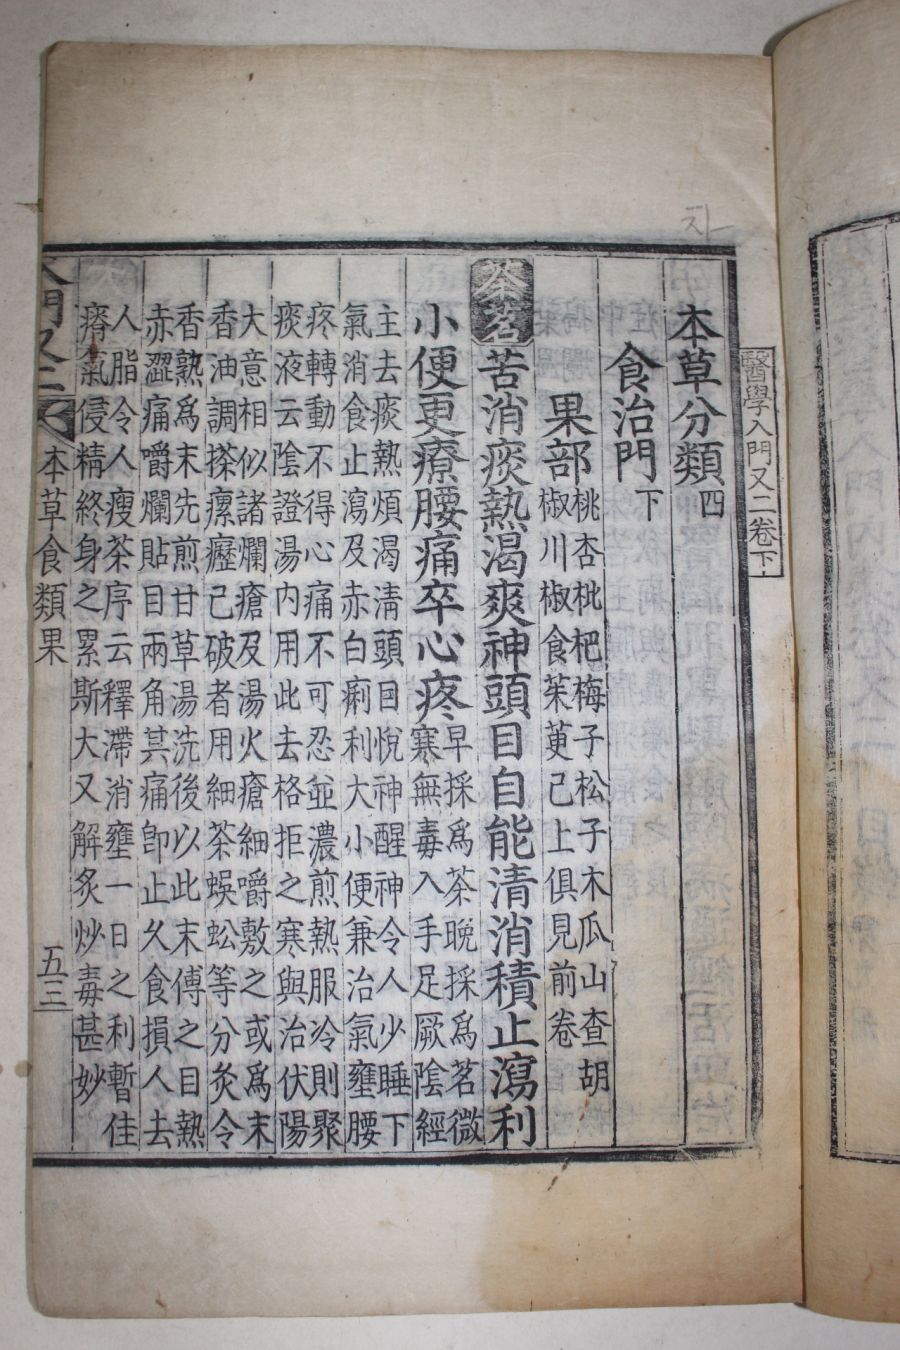 醫學入門又二卷下
本草分類四
食治門下
果部 桃杏枇杷梅子松子木瓜山查胡
椒川椒食茱萸已上俱見前卷
茶茗 苦消痰熱渴爽神頭目自能清消積止瀉利
小便更療腰痛卒心疼 早採爲茶晚採爲茗微
寒無毒入手足厥陰經
主去痰熱煩渴淸頭目悅神醒神令人少睡下
氣消食止瀉及赤白痢利大小便兼治氣壅腰
疼轉動不得心痛不可忍並濃煎熱服冷則聚
痰液云陰證湯內用此去格拒之寒與治伏陽
大意相似諸爛瘡及湯火瘡細嚼敷之或爲末
香油調搽瘰癧已破者用細茶蜈蚣等分炙令
香熟爲末先煎甘草湯洗後以此末傅之目熱
赤澀痛嚼爛貼目兩角其痛卽止久食損人去
人脂令人瘦茶序云釋滯消壅一日之利暫佳
瘠氣侵精終身之累斯大又解炙炒毒甚妙
入門又二 本草食類果 五三